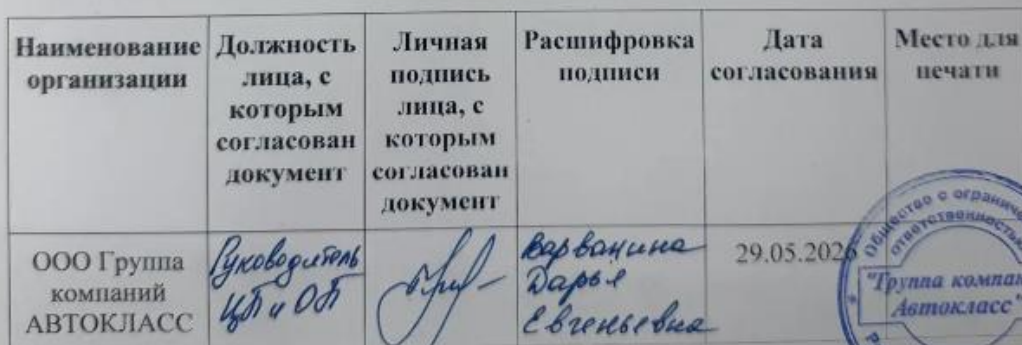 Наименование организации
Должность лица, с которым согласован документ
Личная подпись лица, с которым согласован документ
Расшифровка подписи
Дата согласования
Место для печати
ООО Группа компаний АВТОКЛАСС
Руководитель ЦП и ОП
Варванина Дарья Евгеньевна
29.05.2026
Общество с ограниче
ответственностью
"Группа компан
Автокласс"